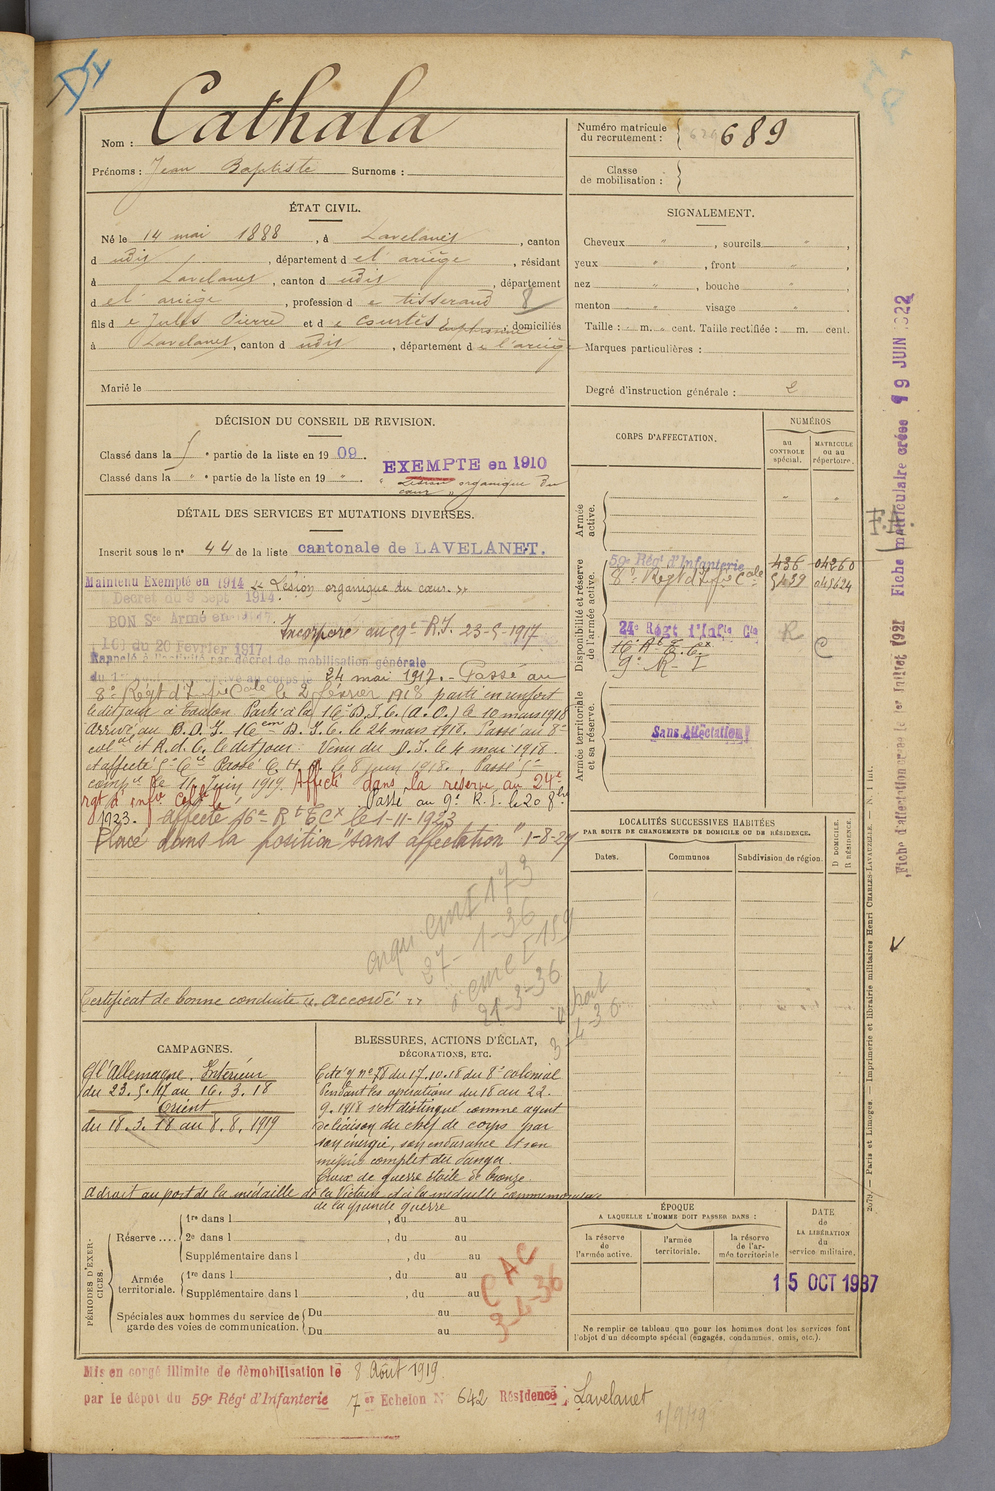 Nom : Cathala
Prénoms : Jean Baptiste Surnoms :
Numéro matricule du recrutement : 689
Classe de mobilisation :
ÉTAT CIVIL.
Né le 14 mai 1888, à Lavelanet, canton
d udit, département d e l'ariège, résidant
à Lavelanet, canton d udit, département
d e l'ariège, profession d e tisserand 8
fils d e Jules Pierre et d e Courtès domiciliés
à Lavelanet, canton d udit, département d e l'ariège
Marié le
SIGNALEMENT.
Cheveux " , sourcils " ,
yeux " , front " ,
nez " , bouche " ,
menton " visage "
Taille : m. cent. Taille rectifiée : m. cent.
Marques particulières :
Degré d'instruction générale : 2
DÉCISION DU CONSEIL DE REVISION.
Classé dans la 5e partie de la liste en 1909.
EXEMPTÉ en 1910
Classé dans la " e partie de la liste en 19 " . " Lésion organique du
cœur "
DÉTAIL DES SERVICES ET MUTATIONS DIVERSES.
Inscrit sous le n° 44 de la liste cantonale de LAVELANET.
Maintenu Exempté en 1914 " Lésion organique du cœur. "
Décret du 9 Sept 1914
BON Sce Armé en 1917.
Incorporé au 59e R.I. 23-5-1917
Loi du 20 Février 1917
Rappelé à l'activité par décret de mobilisation générale
du 1er au corps le 24 mai 1917. - Passé au
8e Régt d'Infie Cale le 2 février 1918 parti en renfort
le dit jour à Toulon Parti à la 16e D.I.C. (A.O.) le 10 mars 1918
Arrivé au D.D.I. 16ème D.I.C. le 24 mars 1918. Passé au 8e
col al et R.d.C. le dit jour. Venu du D.I. le 4 mai 1918.
et affecté 5e Cie Passé C.H.R. le 8 juin 1918. Passé 5e
compie le 11 Juin 1919. Affecté dans la réserve au 24e
rgt d'infie cole le Passé au 9e R.I. le 20 8bre
1923. affecté 16e Rt ECx le 1-11-1923
Placé dans la position "sans affectation" 1-8-27
27-1-36
21-3-36
3-4-36
Certificat de bonne conduite " accordé "
CORPS D'AFFECTATION.
NUMÉROS
au CONTROLE spécial.
MATRICULE ou au répertoire.
Armée active.
Disponibilité et réserve de l'armée active.
59e Régt d'Infanterie 436 04260
8e Régt d'Infie Cale 5439 045624
24e Régt d'Infie Cle R C
16e Rt E. Cx
9e R-I
Armée territoriale et sa réserve.
Sans Affectation
LOCALITÉS SUCCESSIVES HABITÉES
PAR SUITE DE CHANGEMENTS DE DOMICILE OU DE RÉSIDENCE.
Dates. Communes Subdivision de région. D DOMICILE. R RÉSIDENCE.
CAMPAGNES.
C/ l'Allemagne. Intérieur
du 23.5.17 au 16.3.18
Orient
du 18.3.18 au 8.8.1919
BLESSURES, ACTIONS D'ÉCLAT,
DÉCORATIONS, ETC.
Cité n° 78 du 17.10.18 du 8e colonial
Pendant les opérations du 18 au 22.
9.1918 s'est distingué comme agent
de liaison du chef de corps par
son énergie, son endurance et son
mépris complet du danger.
Croix de guerre étoile de bronze.
a droit au port de la médaille de la Victoire et à la médaille commémorative
de la grande guerre
PÉRIODES D'EXERCICES.
Réserve.... 1re dans l , du au
2e dans l , du au
Supplémentaire dans l , du au
Armée territoriale. 1re dans l , du au
Supplémentaire dans l , du au
Spéciales aux hommes du service de garde des voies de communication. Du au
Du au
CAC
3-4-36
ÉPOQUE
A LAQUELLE L'HOMME DOIT PASSER DANS :
la réserve de l'armée active.
l'armée territoriale.
la réserve de l'armée territoriale
DATE de LA LIBÉRATION du service militaire.
15 OCT 1937
Ne remplir ce tableau que pour les hommes dont les services font
l'objet d'un décompte spécial (engagés, condamnés, omis, etc.).
Mis en congé illimité de démobilisation le 8 Août 1919
par le dépôt du 59e Régt d'Infanterie 7 er Echelon N° 642 Résidence : Lavelanet
1/9/19
F.A.
Fiche d'affectation créée le 1er Juillet 1921 Fiche matriculaire créée 19 JUIN 1922
Paris et Limoges. — Imprimerie et librairie militaires Henri CHARLES-LAVAUZELLE. — N. 1 int.